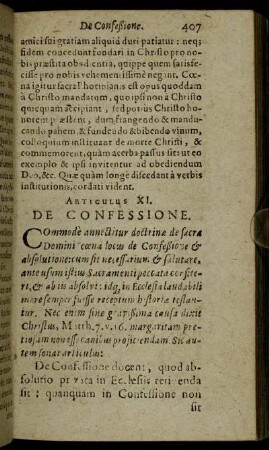 De Confeßione. 407
amici sui gratiam aliquid duri patiatur: neq;
fidem concedunt fundari in Christo pro no-
bis præstita obedientia, quippe quem satisfe-
cisse pro nobis vehementissimè negant. Cœ-
na igitur sacra Photinianis est opus quoddam
à Christo mandatum, quo ipsi non à Christo
quicquam accipiant, sed potiùs Christo ho-
norem præstent, dum frangendo & mandu-
cando panem, & fundendo & bibendo vinum,
colloquium instituant de morte Christi, &
commemorent, quàm acerba passus sit: ut eo
exemplo & ipsi invitentur ad obediendum
Deo, &c. Quæ quàm longè discedant à verbis
institutionis, cordati vident.
ARTICULUS XI.
DE CONFESSIONE.
Commodè annectitur doctrinæ de sacra
Domini cœna locus de Confeßione &
absolutione: cum sit necessarium & salutare,
ante usum istius Sacramenti peccata confite-
ri, & ab iis absolvi: idq; in Ecclesia laudabili
more semper fuisse receptum historiæ testan-
tur. Nec enim sine gravißima causa dixit
Christus, Matth. 7. v. 16. margaritam pre-
tiosam non esse canibus projiciendam. Sic au-
tem sonat articulus:
De Confessione docent, quod ab-
solutio privata in Ecclesiis retinenda
sit: quanquam in Confessione non
sit